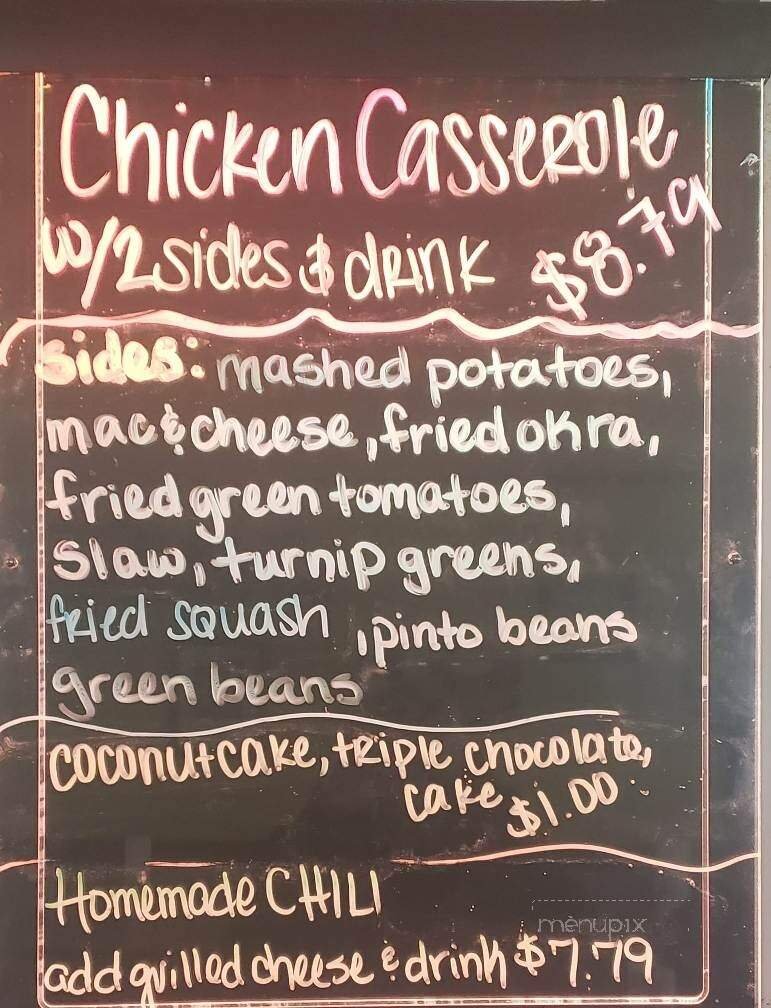 Chicken Casserole
w/2 sides & drink $8.79
sides: mashed potatoes,
mac & cheese, fried okra,
fried green tomatoes,
Slaw, turnip greens,
fried squash, pinto beans
green beans
coconut cake, triple chocolate,
cake $1.00
Homemade CHILI
menupix
add grilled cheese & drink $7.79